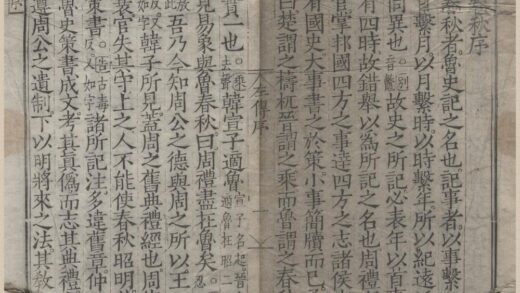 秋序
春秋者。魯史記之名也。記事者。以事繫
日繫月以月繫時以時繫年所以紀遠
同異也。故史之所記必表年以首
有四時故錯舉以為所記之名也周禮
官掌邦國四方之事達四方之志諸侯
有國史大事書之於策小事簡牘而已
曰楚謂之檮杌晉謂之乘而魯謂之春
左傳序 一
實一也。乘去聲韓宣子適魯宣子名起晉適魯在昭二
見易象與魯春秋曰周禮盡在魯矣。忍
吾乃今知周公之德與周之所以王
如字韓子所見蓋周之舊典禮經也周
衰官失其守上之人不能使春秋昭明
策書。又如字諸所記注多違舊章仲
魯史策書成文考其真偽而志其典禮
遵周公之遺制下以明將來之法其教